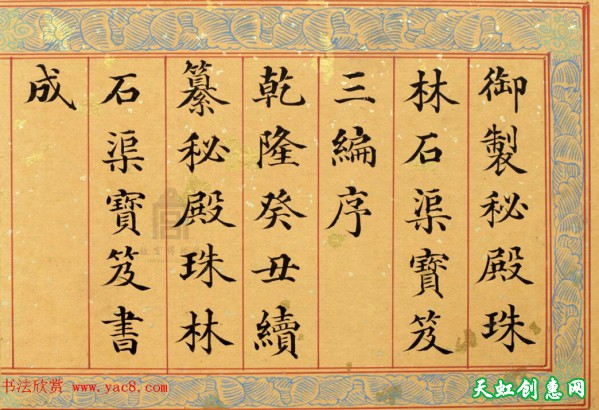 御製秘殿珠
林石渠寶笈
三編序
乾隆癸丑續
纂秘殿珠林
石渠寶笈書
成
书法欣赏 www.yac8.com
天虹创惠网